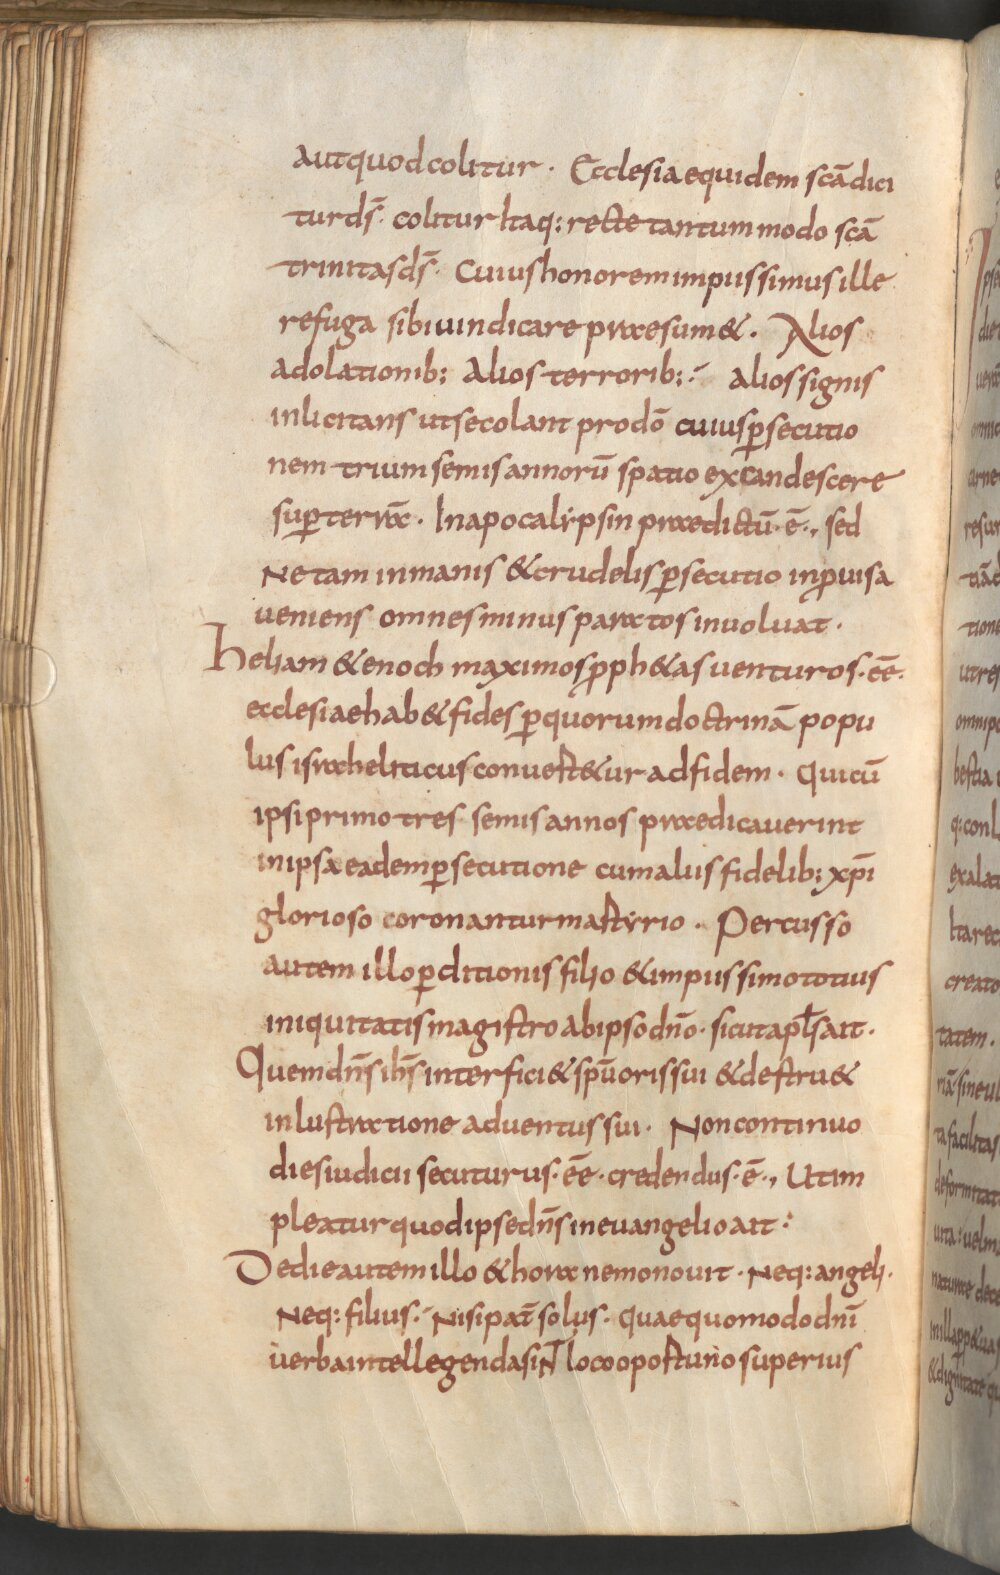 autquodcolitur · Ecclesia equidem scā dici
tur ds̄· colitur Itaq: recte tantummodo scā
trinitas ds̄· Cuius honorem impiissimus ille
refuga sibi uindicare praesum&. Alios
adolationib; Alios terrorib;·᾽ Alios signis
inlicitans ut se colant pro dō cuius ꝑsecutio
nem trium semis annorū spatio excandescere
suꝑ terrā· In apocalypsin praedictū·ē·, sed
Ne tam inmanis & crudelis ꝑsecutio inꝓuisa
ueniens omnes minus paratos inuoluat·
Heliam & enoch maximos ꝓph&as uenturos·eē·
ecclesiae hab& fides ꝑ quorum doctrinā popu
lus israheliticus conuert&ur ad fidem· Qui cū
ipsi primo tres semis annos praedicauerint
in ipsa eadem ꝑsecutione cum aliis fidelib; xp̄i
glorioso coronantur martyrio· Percusso
autem illo ꝑditionis filio & impiissimo totius
iniquitatis magistro ab ipso dn̄o· sicut apl̄s ait·
Quem dn̄s ih̄s interfici& spū oris sui & destru&
inlustratione aduentus sui· Non continuo
dies iudicii secuturus·eē· credendus·ē·, Ut im
pleatur quod ipse dn̄s in euangelio ait:
De die autem illo & hora nemo nouit· Neq: angeli·
Neq: filius·᾽ Nisi pat̄ solus· quae quomodo dn̄i
uerba intellegenda siNT loco oportuno superius